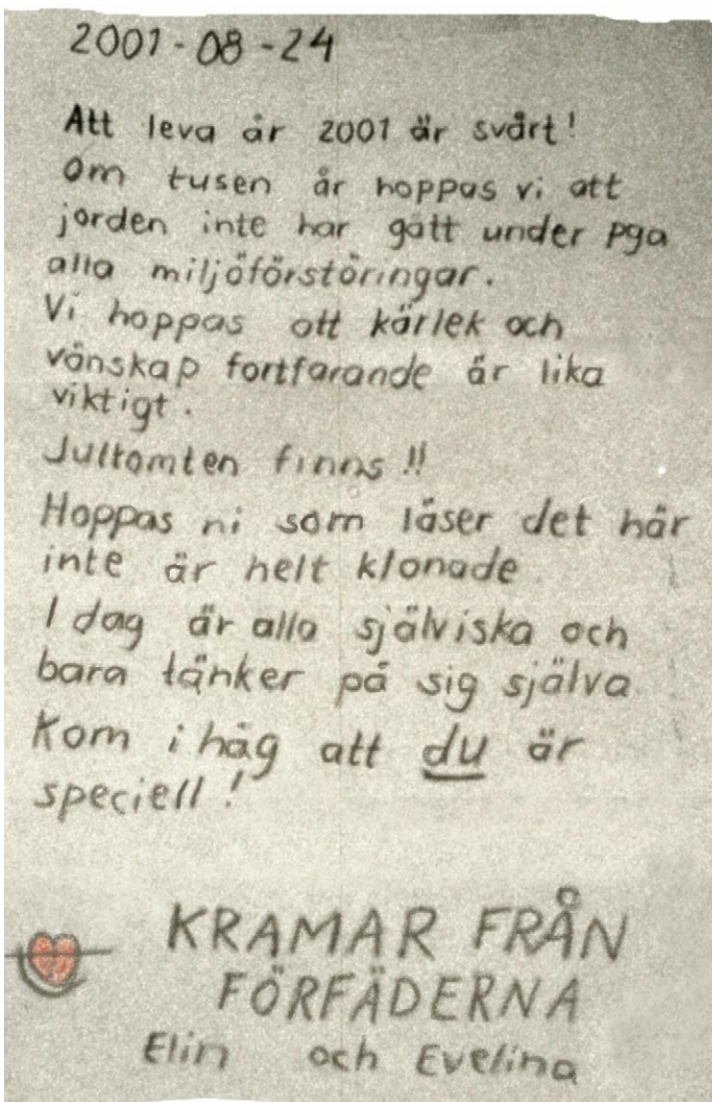 2001-08-24
Att leva år 2001 är svårt!
Om tusen år hoppas vi att
jorden inte har gått under pga
alla miljöförstöringar.
Vi hoppas att kärlek och
vänskap fortfarande är lika
viktigt.
Jultomten finns!!
Hoppas ni som läser det här
inte är helt klonade
I dag är alla själviska och
bara tänker på sig själva
Kom ihåg att du är
speciell!
KRAMAR FRÅN
FÖRFÄDERNA
Elin och Evelina